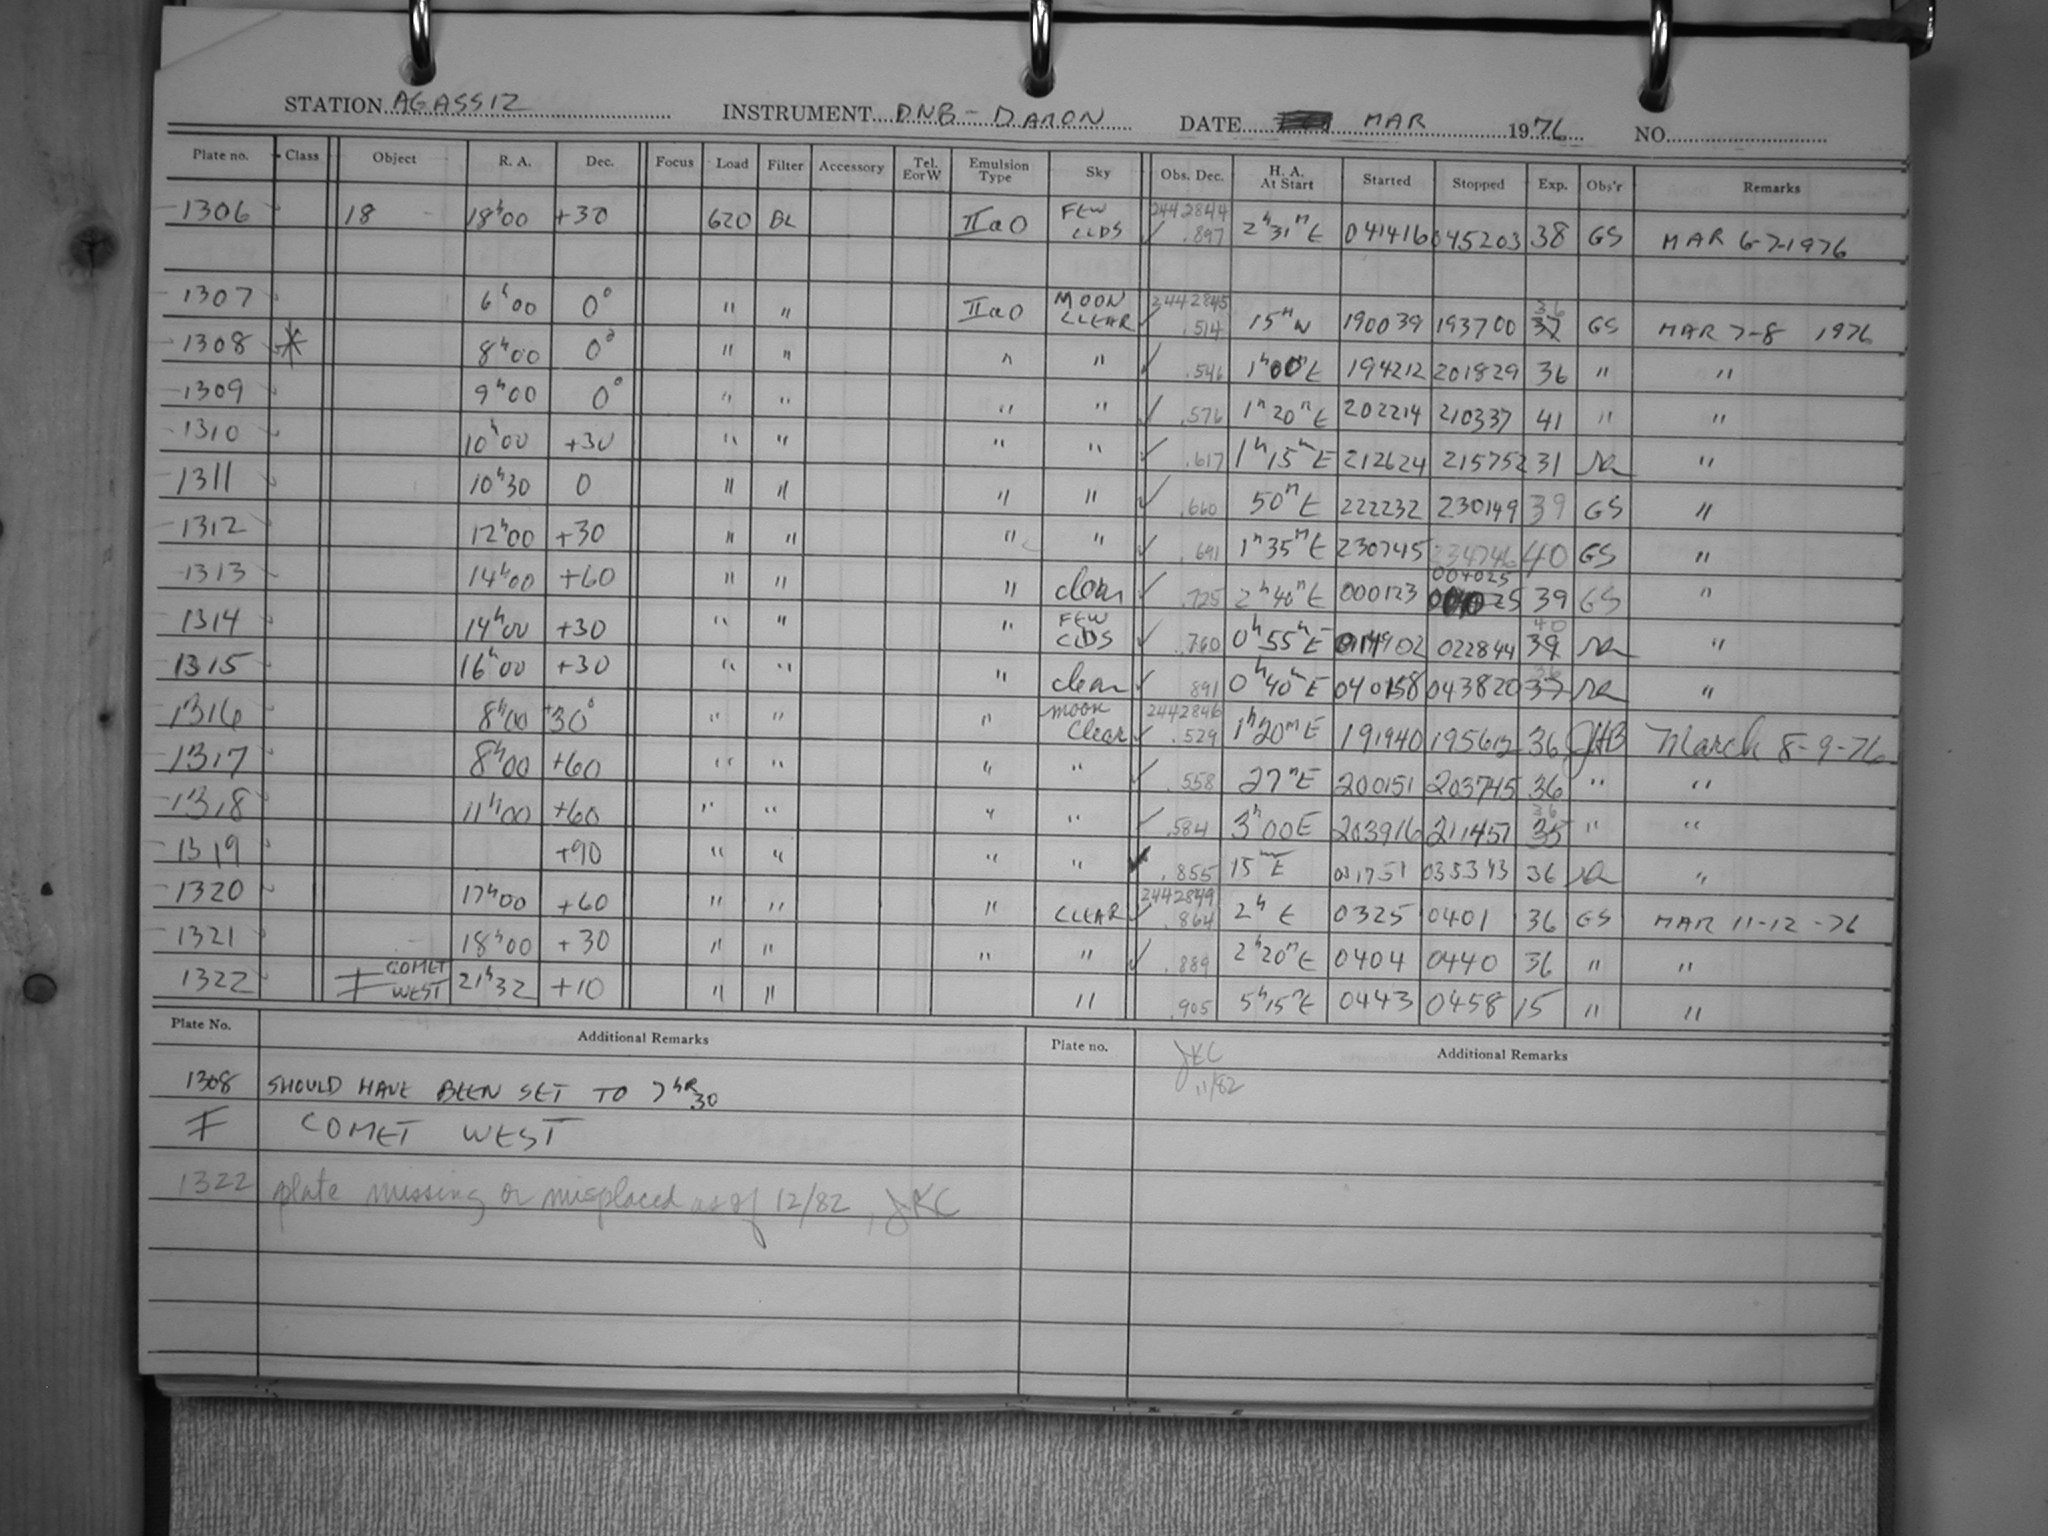 STATION AGASSIZ INSTRUMENT DNB - DAMON DATE MAR 1976 NO.
Plate no. Class Object R. A. Dec. Focus Load Filter Accessory Tel. E or W Emulsion Type Sky Obs. Dec. H. A. At Start Started Stopped Exp. Obs'r Remarks
1306 18 18h00 +30 620 BL IIaO FEW CLDS 2442844 .897 2h31m E 041416 045203 38 GS MAR 6-7-1976
1307 6h00 0° " " IIaO MOON CLEAR 2442845 .514 15m W 190039 193700 36 37 GS MAR 7-8 1976
1308 * 8h00 0° " " " " .546 1h00m E 194212 201829 36 " "
1309 9h00 0° " " " " .576 1h20m E 202214 210337 41 " "
1310 10h00 +30 " " " " .617 1h15m E 212624 215752 31 "
1311 10h30 0 " " " " .660 50m E 222232 230149 39 GS "
1312 12h00 +30 " " " " .691 1h35m E 230745 234746 40 GS "
1313 14h00 +60 " " " clear .725 2h40m E 000123 004025 39 GS "
1314 14h00 +30 " " " FEW CLDS .760 0h55m E 014902 022844 40 39 "
1315 16h00 +30 " " " clear .891 0h40m E 040158 043820 37 "
1316 8h00 +30° " " " moon Clear 2442846 .529 1h20m E 191940 195612 36 JHB March 8-9-76
1317 8h00 +60 " " " " .558 27m E 200151 203745 36 " "
1318 11h00 +60 " " " " .584 3h00 E 203916 211457 36 35 " "
1319 +90 " " " " .855 15m E 031751 035343 36 "
1320 17h00 +60 " " " CLEAR 2442849 .864 2h E 0325 0401 36 GS MAR 11-12-76
1321 18h00 +30 " " " " .889 2h20m E 0404 0440 36 " "
1322 COMET WEST 21h32 +10 " " " .905 5h15m E 0443 0458 15 " "
Plate No. Additional Remarks Plate no. Additional Remarks
JKC
11/82
1308 SHOULD HAVE BEEN SET TO 7hR30
COMET WEST
1322 plate missing or misplaced as of 12/82, JKC